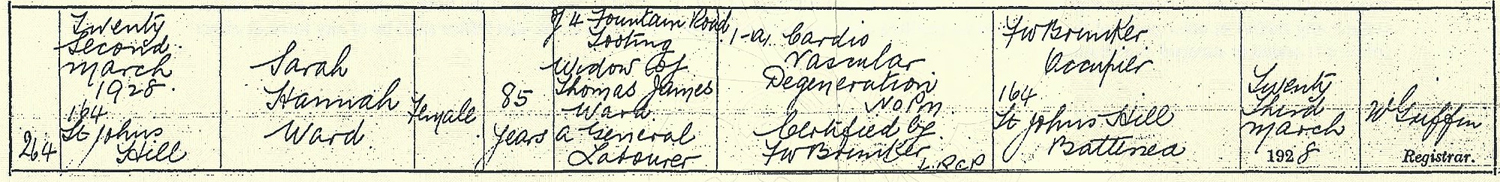 264
Twenty
Second
March
1928.
164
St Johns
Hill
Sarah
Hannah
Ward
Female
85
years
of 4 Fountain Road
Tooting
Widow of
Thomas James
Ward
a General
Labourer
1-a, Cardio
Vascular
Degeneration
No P.M.
Certified by
FW Brimker L.R.C.P
FW Brimker
Occupier
164
St Johns Hill
Battersea
Twenty
Third
March
1928
W Griffin
Registrar.